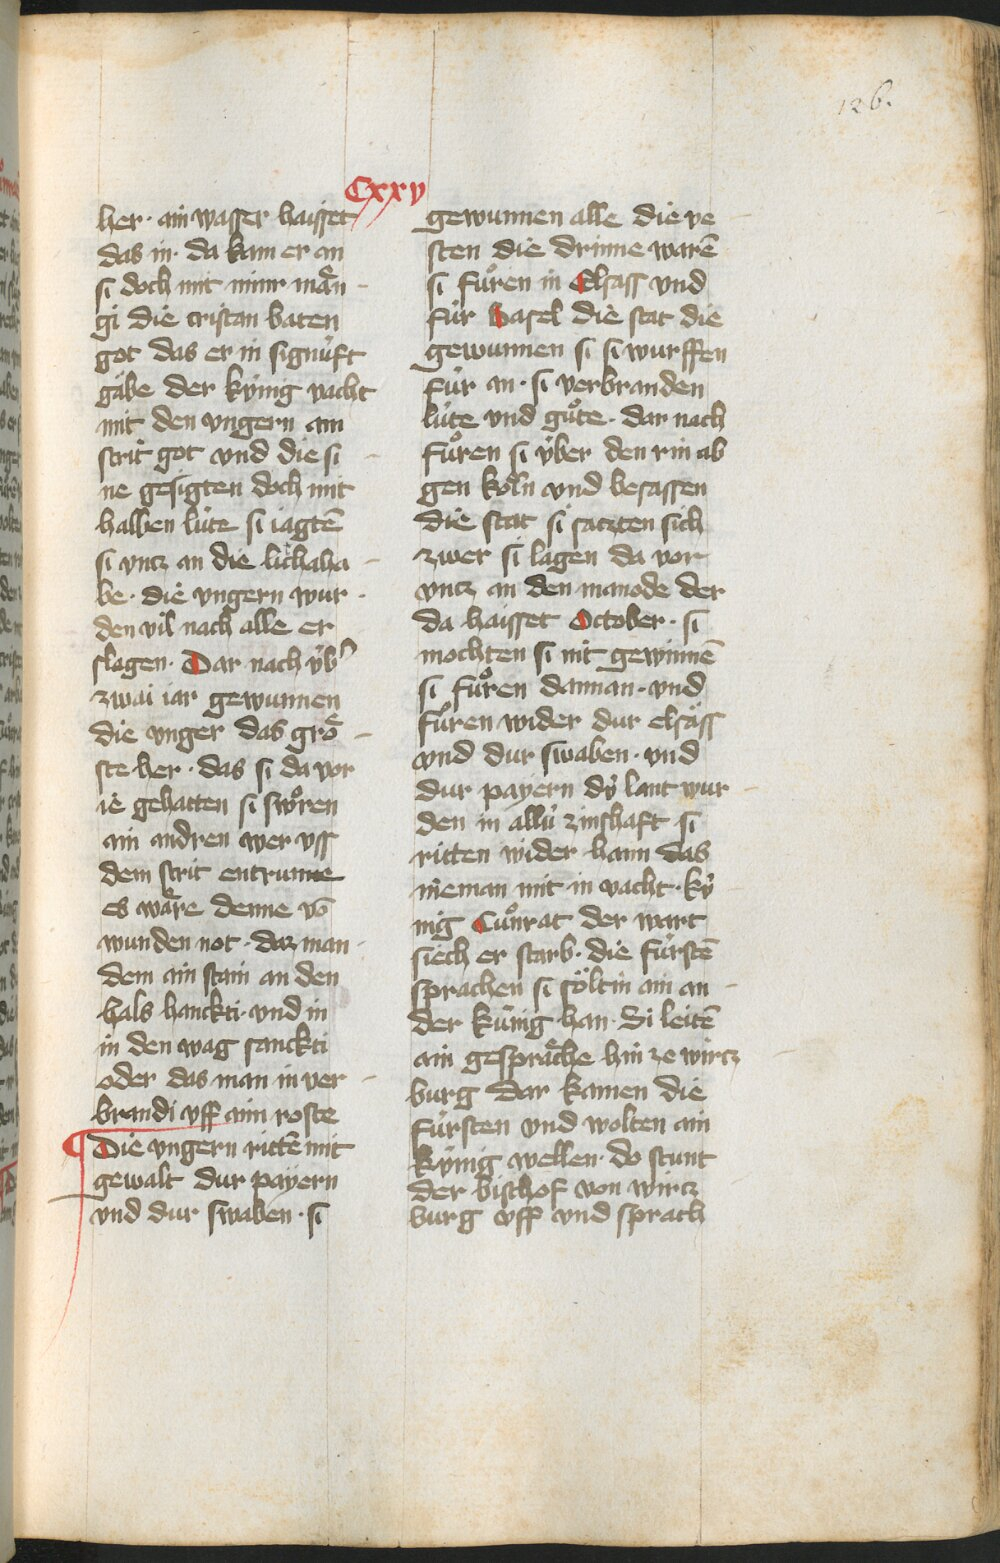 126.
Cxxv
her · ain wasser haisset
das in · da kam er an
si doch mit minr mặn
gi die cristan baten
got das er in signuͤft
gäbe der kỳnig vacht
mit den vngern ain
strit got vnd die si
ne gesigten doch mit
halben luͤte si iagtē
si vntz an die lichaha
be · die vngern wur
den vil nach alle er
slagen · Dar nach ỳbˀ
zwai iar gewunnen
die vnger das groͤ
ste her · das si da vor
ie gehatten si swuͦren
ain andren wer vss
dem strit entrunne
es waͤre denne vō
wunden not · daz man
dem ain stain an den
hals hanckti · vnd in
in den wag sanckti
oder das man in ver
brandi vff aim roste
¶ Die vngern rittē mit
gewalt dur payern
vnd dur swaben · si
gewunnen alle die ve
sten die drinne warē
si fuͦren in Elsass vnd
fuͤr basel die stat die
gewunnen si si wurffen
fuͤr an · si verbranden
luͤte vnd guͦte · dar nach
fuͦren si ỳber den rin ab
gen koͤln vnd besassen
die stat si saczten sich
zwer si lagen da vor
vntz an den manode der
da haisset October · si
mochten si nit gewinnē
si fuͦren dannan · vnd
fuͦren wider dur elsäss
vnd dur swaben · vnd
dur payern dỳ lant wur
den in alluͤ zinshaft si
ritten wider hain das
nieman mit in vacht · kỳ
nig Cuͦnrat der wart
siech er starb · die fuͤrstē
sprachen si soͤltin ain an
der kuͤnig han · Si leitē
ain gespraͤche hin ze wirtz
burg dar kamen die
fuͤrsten vnd wolten ain
kỳnig wellen · do stunt
der bischof von wirtz
burg vff vnd sprach